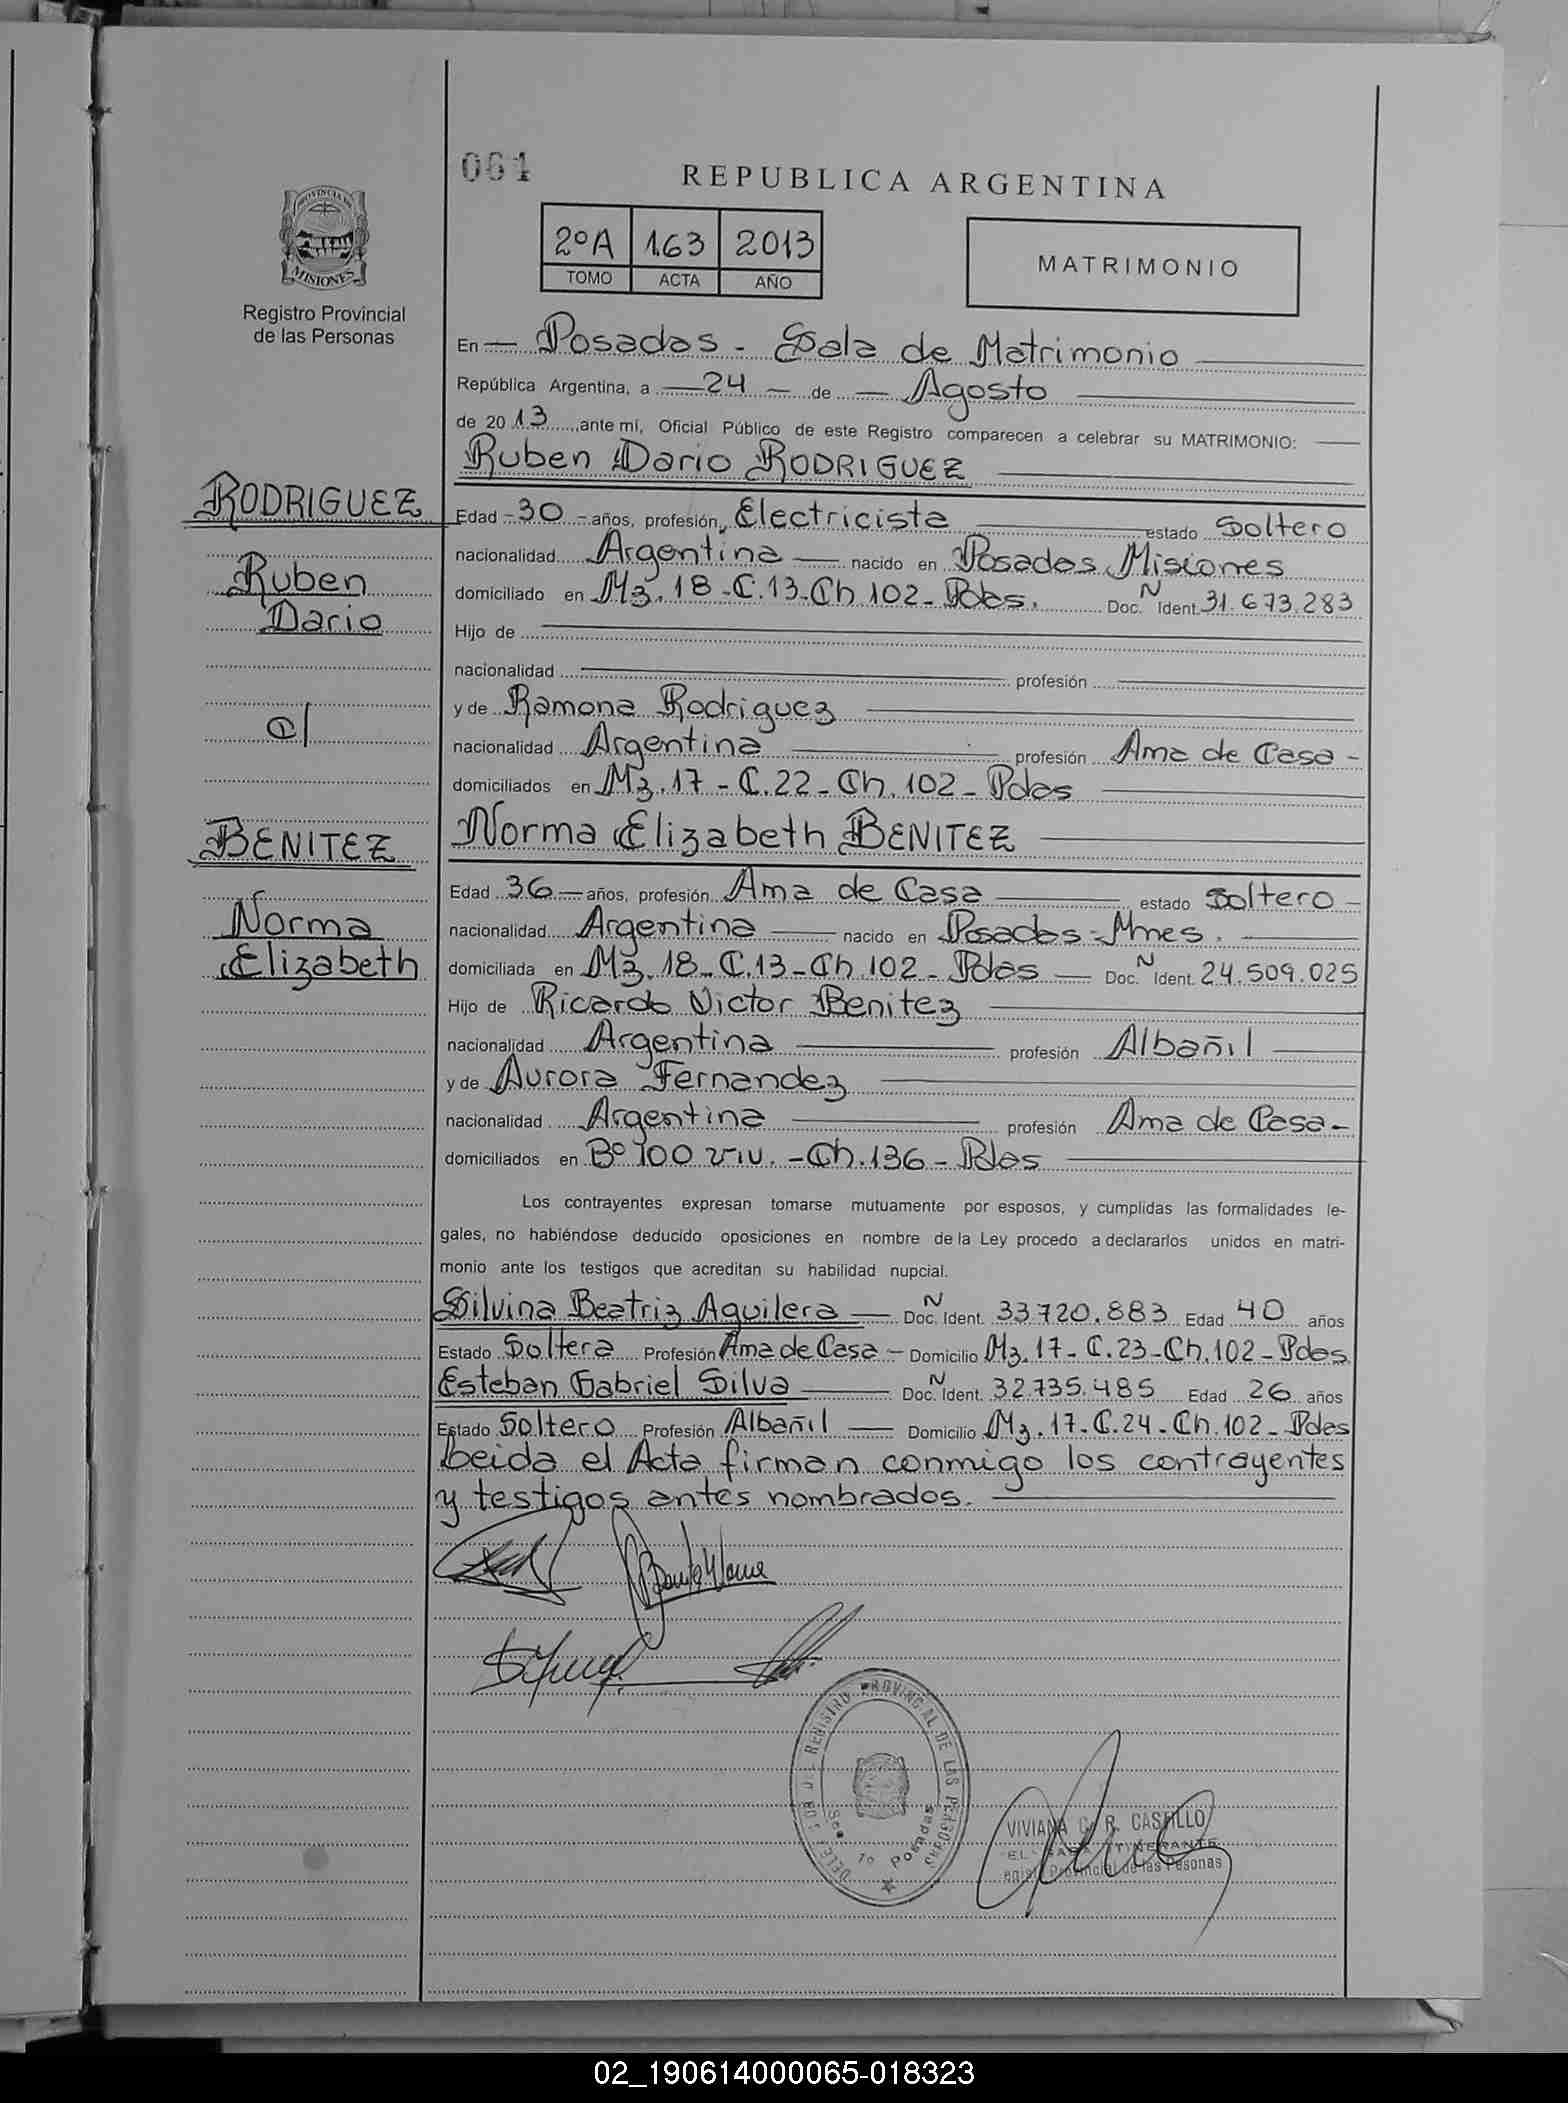 061
REPUBLICA ARGENTINA
2ºA 163 2013
TOMO ACTA AÑO
MATRIMONIO
PROVINCIA DE
MISIONES
Registro Provincial
de las Personas
En — Posadas - Sala de Matrimonio
República Argentina, a — 24 — de — Agosto
de 2013, ante mí, Oficial Público de este Registro comparecen a celebrar su MATRIMONIO:
Ruben Dario RODRIGUEZ
RODRIGUEZ
Ruben
Dario
c/
BENITEZ
Norma
Elizabeth
Edad - 30 - años, profesión, Electricista estado Soltero
nacionalidad Argentina — nacido en Posadas, Misiones
domiciliado en Mz. 18 - C. 13 - Ch 102 - Pdas. Doc. N Ident. 31.673.283
Hijo de
nacionalidad profesión
y de Ramona Rodriguez
nacionalidad Argentina profesión Ama de Casa -
domiciliados en Mz. 17 - C. 22 - Ch. 102 - Pdas
Norma Elizabeth BENITEZ
Edad 36 — años, profesión Ama de Casa estado Soltero -
nacionalidad Argentina — nacido en Posadas - Mnes.
domiciliada en Mz. 18 - C. 13 - Ch 102 - Pdas — Doc. N Ident. 24.509.025
Hijo de Ricardo Victor Benitez
nacionalidad Argentina profesión Albañil
y de Aurora Fernandez
nacionalidad Argentina profesión Ama de Casa -
domiciliados en Bº 100 viv. - Ch. 136 - Pdas
Los contrayentes expresan tomarse mutuamente por esposos, y cumplidas las formalidades le-
gales, no habiéndose deducido oposiciones en nombre de la Ley procedo a declararlos unidos en matri-
monio ante los testigos que acreditan su habilidad nupcial.
Silvina Beatriz Aguilera — Doc. N Ident. 33720.883 Edad 40 años
Estado Soltera Profesión Ama de Casa - Domicilio Mz. 17 - C. 23 - Ch. 102 - Pdas
Esteban Gabriel Silva — Doc. N Ident. 32.735.485 Edad 26 años
Estado Soltero Profesión Albañil — Domicilio Mz. 17 - C. 24 - Ch. 102 - Pdas
Leida el Acta firman conmigo los contrayentes
y testigos antes nombrados.
REGISTRO PROVINCIAL DE LAS PERSONAS
Sec 1º Posadas
VIVIANA C. R. CASTILLO
ITINERANTE
Provincial de las Pesonas
02_190614000065-018323